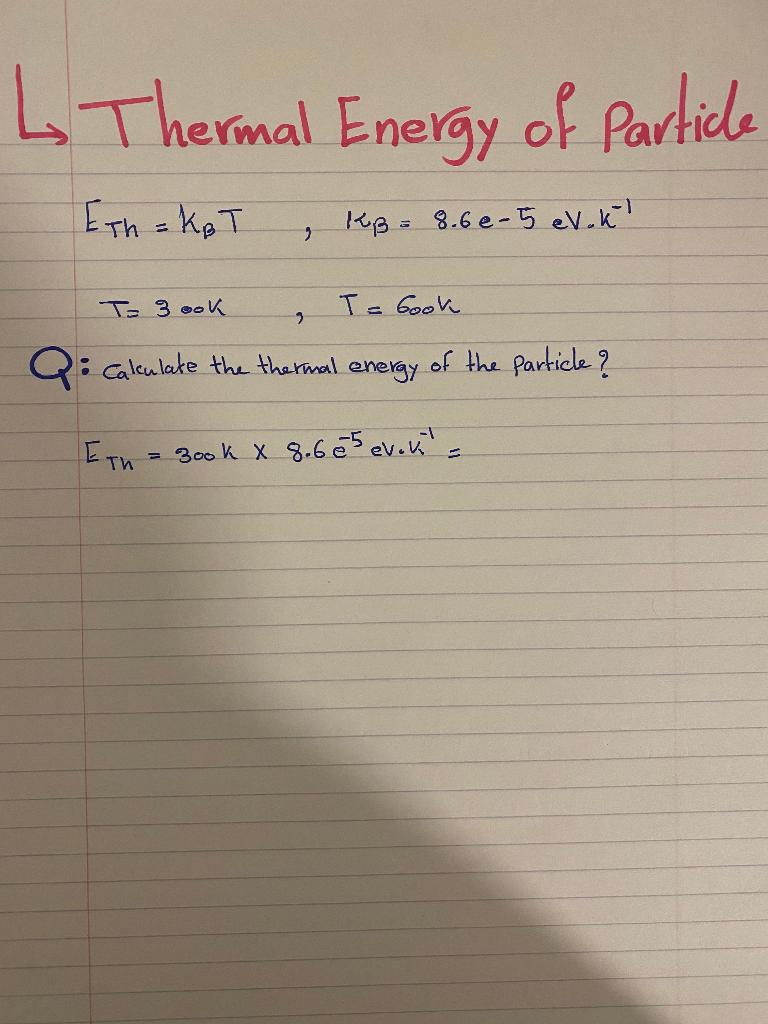 ↳ Thermal Energy of Particle
E_Th = K_B T , K_B = 8.6e-5 eV.K⁻¹
T= 300K , T = 600K
Q: Calculate the thermal energy of the particle?
E_Th = 300K X 8.6e⁻⁵ eV.K⁻¹ =